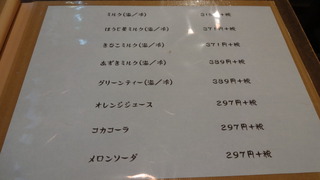 ミルク(温/冷)
ほうじ茶ミルク(温/冷) 371円+税
きなこミルク(温/冷) 371円+税
あずきミルク(温/冷) 389円+税
グリーンティー(温/冷) 389円+税
オレンジジュース 297円+税
コカコーラ 297円+税
メロンソーダ 297円+税